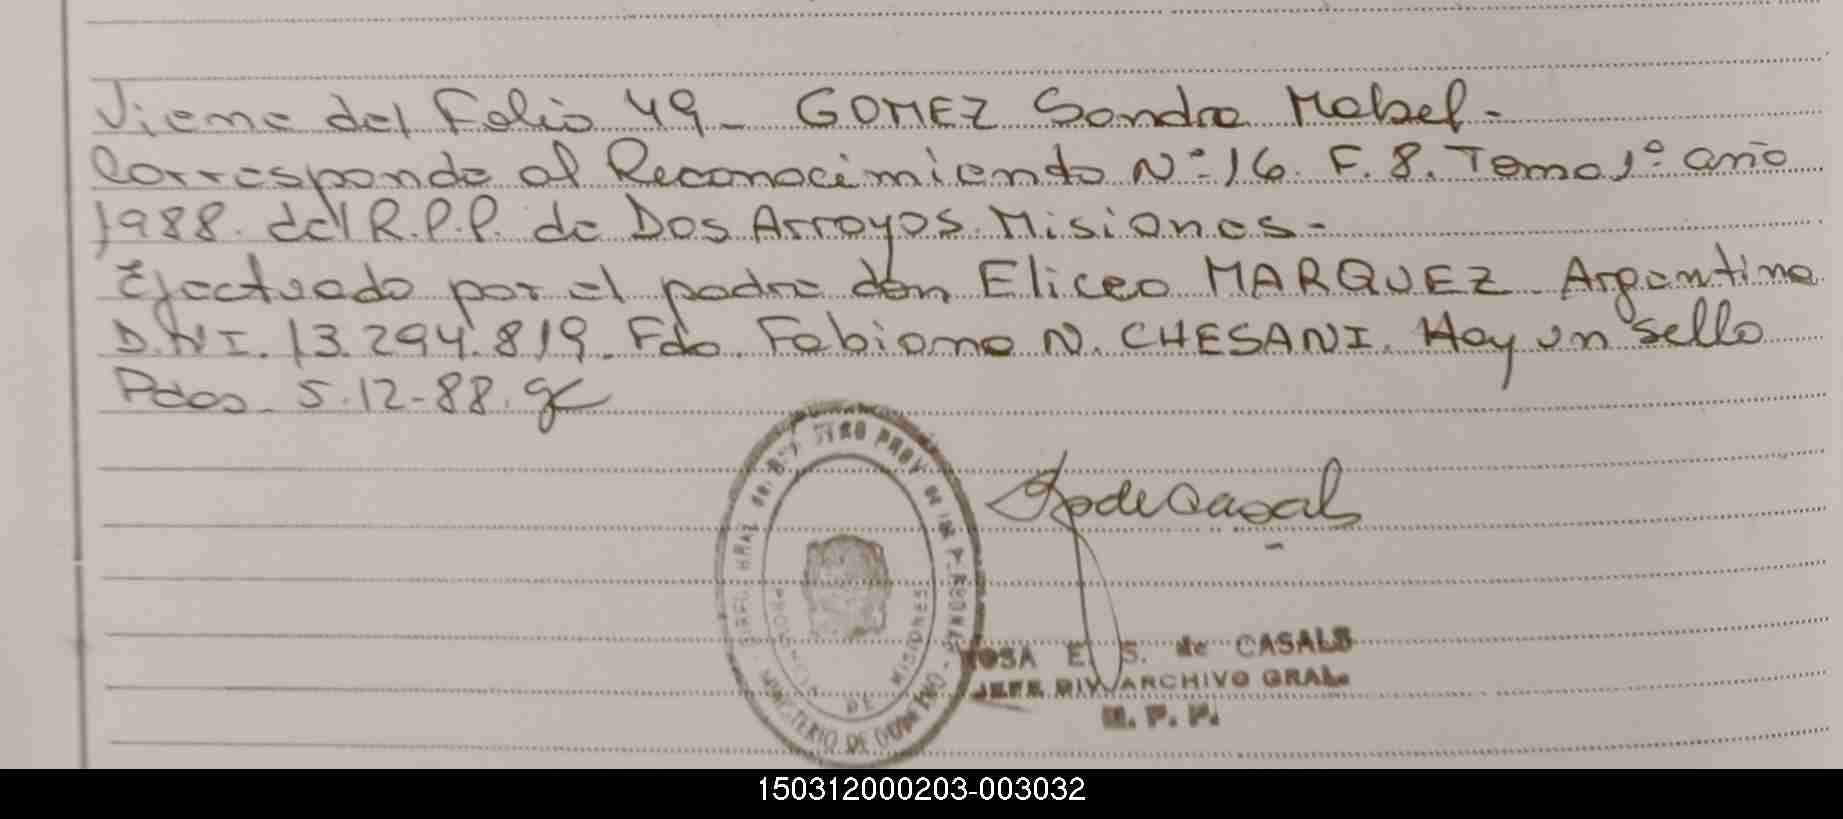 Viene del Folio 49 - GOMEZ Sandra Mabel -
Corresponde al Reconocimiento Nº 16. F. 8. Tomo 1º año
1988. del R.P.P. de Dos Arroyos. Misiones -
Efectuado por el padre don Eliceo MARQUEZ. Argentino
D.N.I. 13.294.819. Fdo. Fabiana N. CHESANI. Hay un sello
Pdas. 5-12-88.
PROVINCIA DE MISIONES
MINISTERIO DE GOBIERNO
E. S. de CASALS
JEFE DIV. ARCHIVO GRAL.
R. P. P.
150312000203-003032